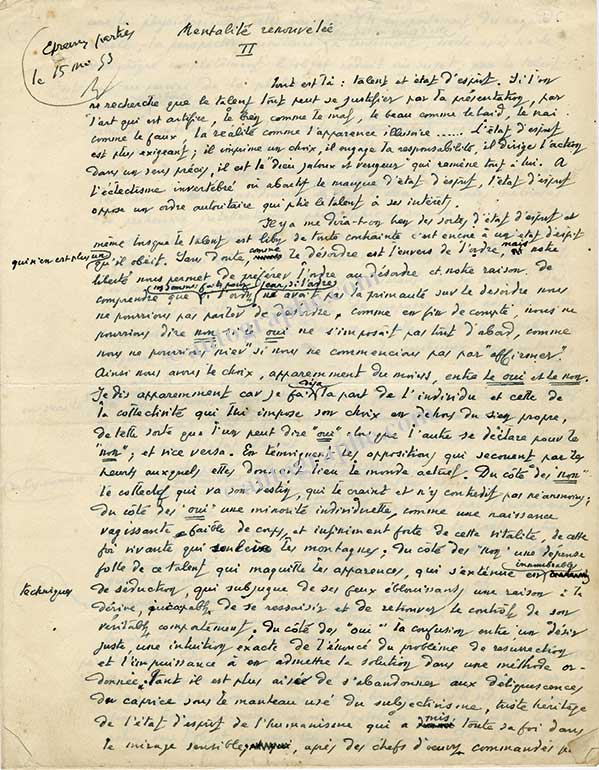 Epreuves parties
le 15 mai 53
Mentalité renouvelée
II
Tout est là : talent et état d'esprit. Si l'on
ne recherche que le talent tout peut se justifier par la présentation, par
l'art qui est artifice, le bien comme le mal, le beau comme le laid, le vrai
comme le faux, la réalité comme l'apparence illusoire...... L'état d'esprit
est plus exigeant ; il imprime un choix, il engage la responsabilité, il dirige l'action
dans un sens précis, il est le "dieu jaloux et vengeur" qui ramène tout à lui. A
l'éclectisme invertébré où aboutit le manque d'état d'esprit, l'état d'esprit
oppose un ordre autoritaire qui plie le talent à ses intérêt.
Il y a me dira-t-on bien des sortes d'état d'esprit et
même lorsque le talent est libre de toute contrainte c'est encore à un état d'esprit
qui n'en est plus un qu'il obéit. Sans doute, comme le désordre est l'envers de l'ordre, mais notre
liberté nous permet de préférer l'ordre au désordre et notre raison de
comprendre que si l'ordre n'avait pas la primauté sur le désordre nous
ne pourrions pas parler de désordre, comme en fin de compte, nous ne
pourrions dire non si le oui ne s'imposait pas tout d'abord, comme
nous ne pourrions "nier" si nous ne commencions pas par "affirmer".
Ainsi nous avons le choix, apparemment du moins, entre le oui et le non.
Je dis apparemment car je fais la part de l'individu et celle de
la collectivité qui lui impose son choix en dehors du sien propre,
de telle sorte que l'un peut dire "oui" lorsque l'autre se déclare pour le
"non" ; et vice versa. En témoignent les oppositions qui secouent par les
heurts auxquels elles donnent lieu le monde actuel. Du côté des "non"
le collectif qui va son destin, qui le craint et n'y contredit pas néanmoins ;
du côté des "oui" une minorité individuelle, comme une naissance
vagissante, faible de corps, et infiniment forte de cette vitalité, de cette
foi vivante qui soulève les montagnes. Du côté des "non" une dépense
folle de ce talent qui maquille les apparences, qui s'exténue en innombrables
techniques de séduction, qui subjugue de ses feux éblouissants une raison à la
dérive, incapable de se ressaisir et de retrouver le contrôle de son
véritable comportement. Du côté des "oui" la confusion entre un désir
juste, une intuition exacte de l'énoncé du problème de resurrection
et l'impuissance à en admettre la solution dans une méthode or-
donnée, tant il est plus aisé de s'abandonner aux déliquescences
du caprice sous le manteau usé du subjectivisme, triste héritage
de l'état d'esprit de l'humanisme qui a mis toute sa foi dans
le mirage sensible, après des chefs d'oeuvre commandés